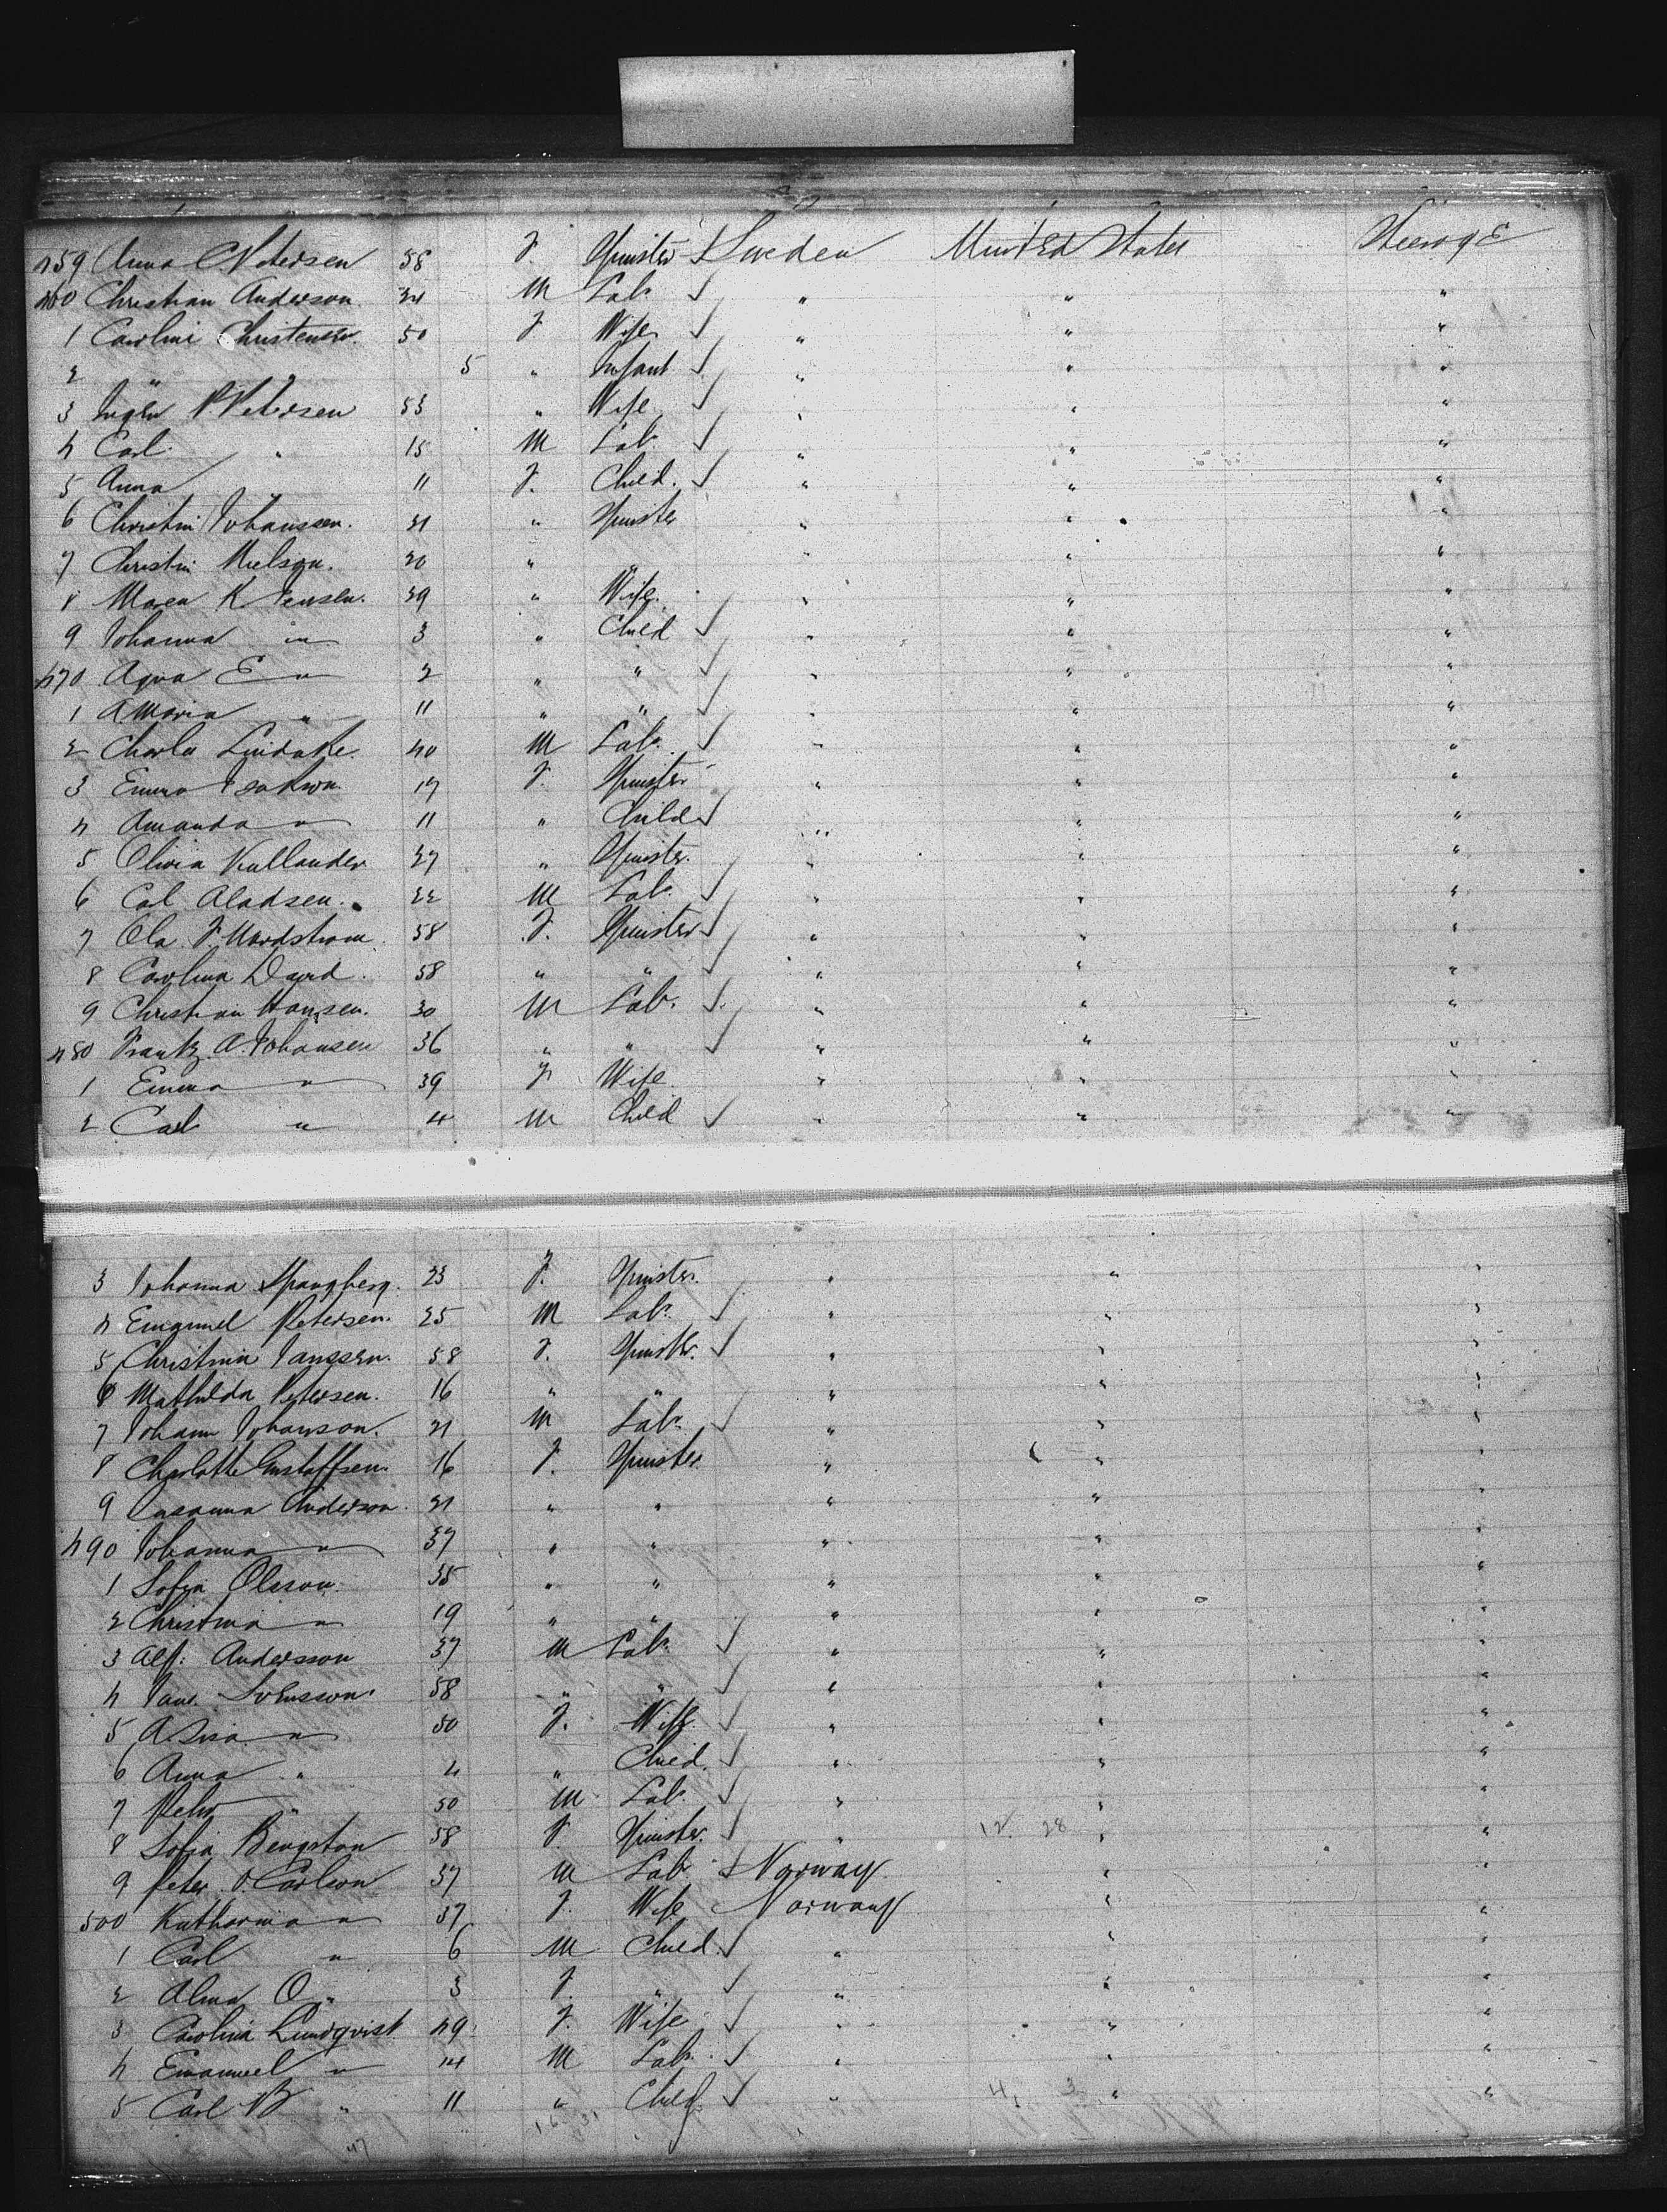 459 Anna C. Petersen 58 F. Spinster Sweden United States Steerage
460 Christian Anderson 34 M Lab. " " "
1 Carolina Christensen 50 F Wife " " "
2 " 5 " Infant " " "
3 P. Petersen 53 " Wife " " "
4 Carl " 15 M Lab. " " "
5 Anna 11 F. Child. " " "
6 Christin Johanssen. 31 " Spinster " " "
7 Christin Nielson. 20 " " " "
8 Maren K Jensen. 39 " Wife. " " "
9 Johanna " 3 " Child " " "
470 E " 2 " " " " "
1 A Maria " 11 " " " " "
2 Charles 40 M Lab. " " "
3 Emma 17 F. Spinster " " "
4 Amanda " 11 " Child " " "
5 Olivia Kullander 27 " Spinster. " " "
6 Carl 22 M Lab. " " "
7 Ola F. Nordstrom 58 F. Spinster " " "
8 Carolina David. 58 " " " " "
9 Christian Hansen. 30 M Lab. " " "
480 Frantz. A. Johansen 36 " " " " "
1 Emma " 39 F Wife " " "
2 Carl " 4 M Child " " "
3 Johanna Spangberg. 23 F. Spinster. " " "
4 Emanuel Petersen. 25 M Lab. " " "
5 Christina Janssen. 58 F. Spinster. " " "
6 Mathilda Petersen. 16 " " " " "
7 Johann Johanson. 21 M Lab. " " "
8 Charlotte Gustaffsen. 16 F. Spinster " " "
9 Anderson. 21 " " " " "
490 Johanna " 37 " " " " "
1 Sofia Olsson. 35 " " " " "
2 Christina " 19 " " " " "
3 Alf: Andersson 37 M Lab. " " "
4 Svensson. 58 " " " " "
5 A. " 50 F. Wife. " " "
6 Anna " 4 " Child. " " "
7 Peter " 50 M Lab. " " "
8 Sofia Bengston 58 F. Spinster. " 12 28 " "
9 Peter O. Carlson 37 M Lab Norway " "
500 Katharina " 37 F. Wife Norway " "
1 Carl " 6 M Child. " " "
2 Alma O " 3 F. " " " "
3 Carolina Lundqvist 49 F. Wife " " "
4 Emanuel " 14 M Lab. " " "
5 Carl " 11 " Child. " " "
47